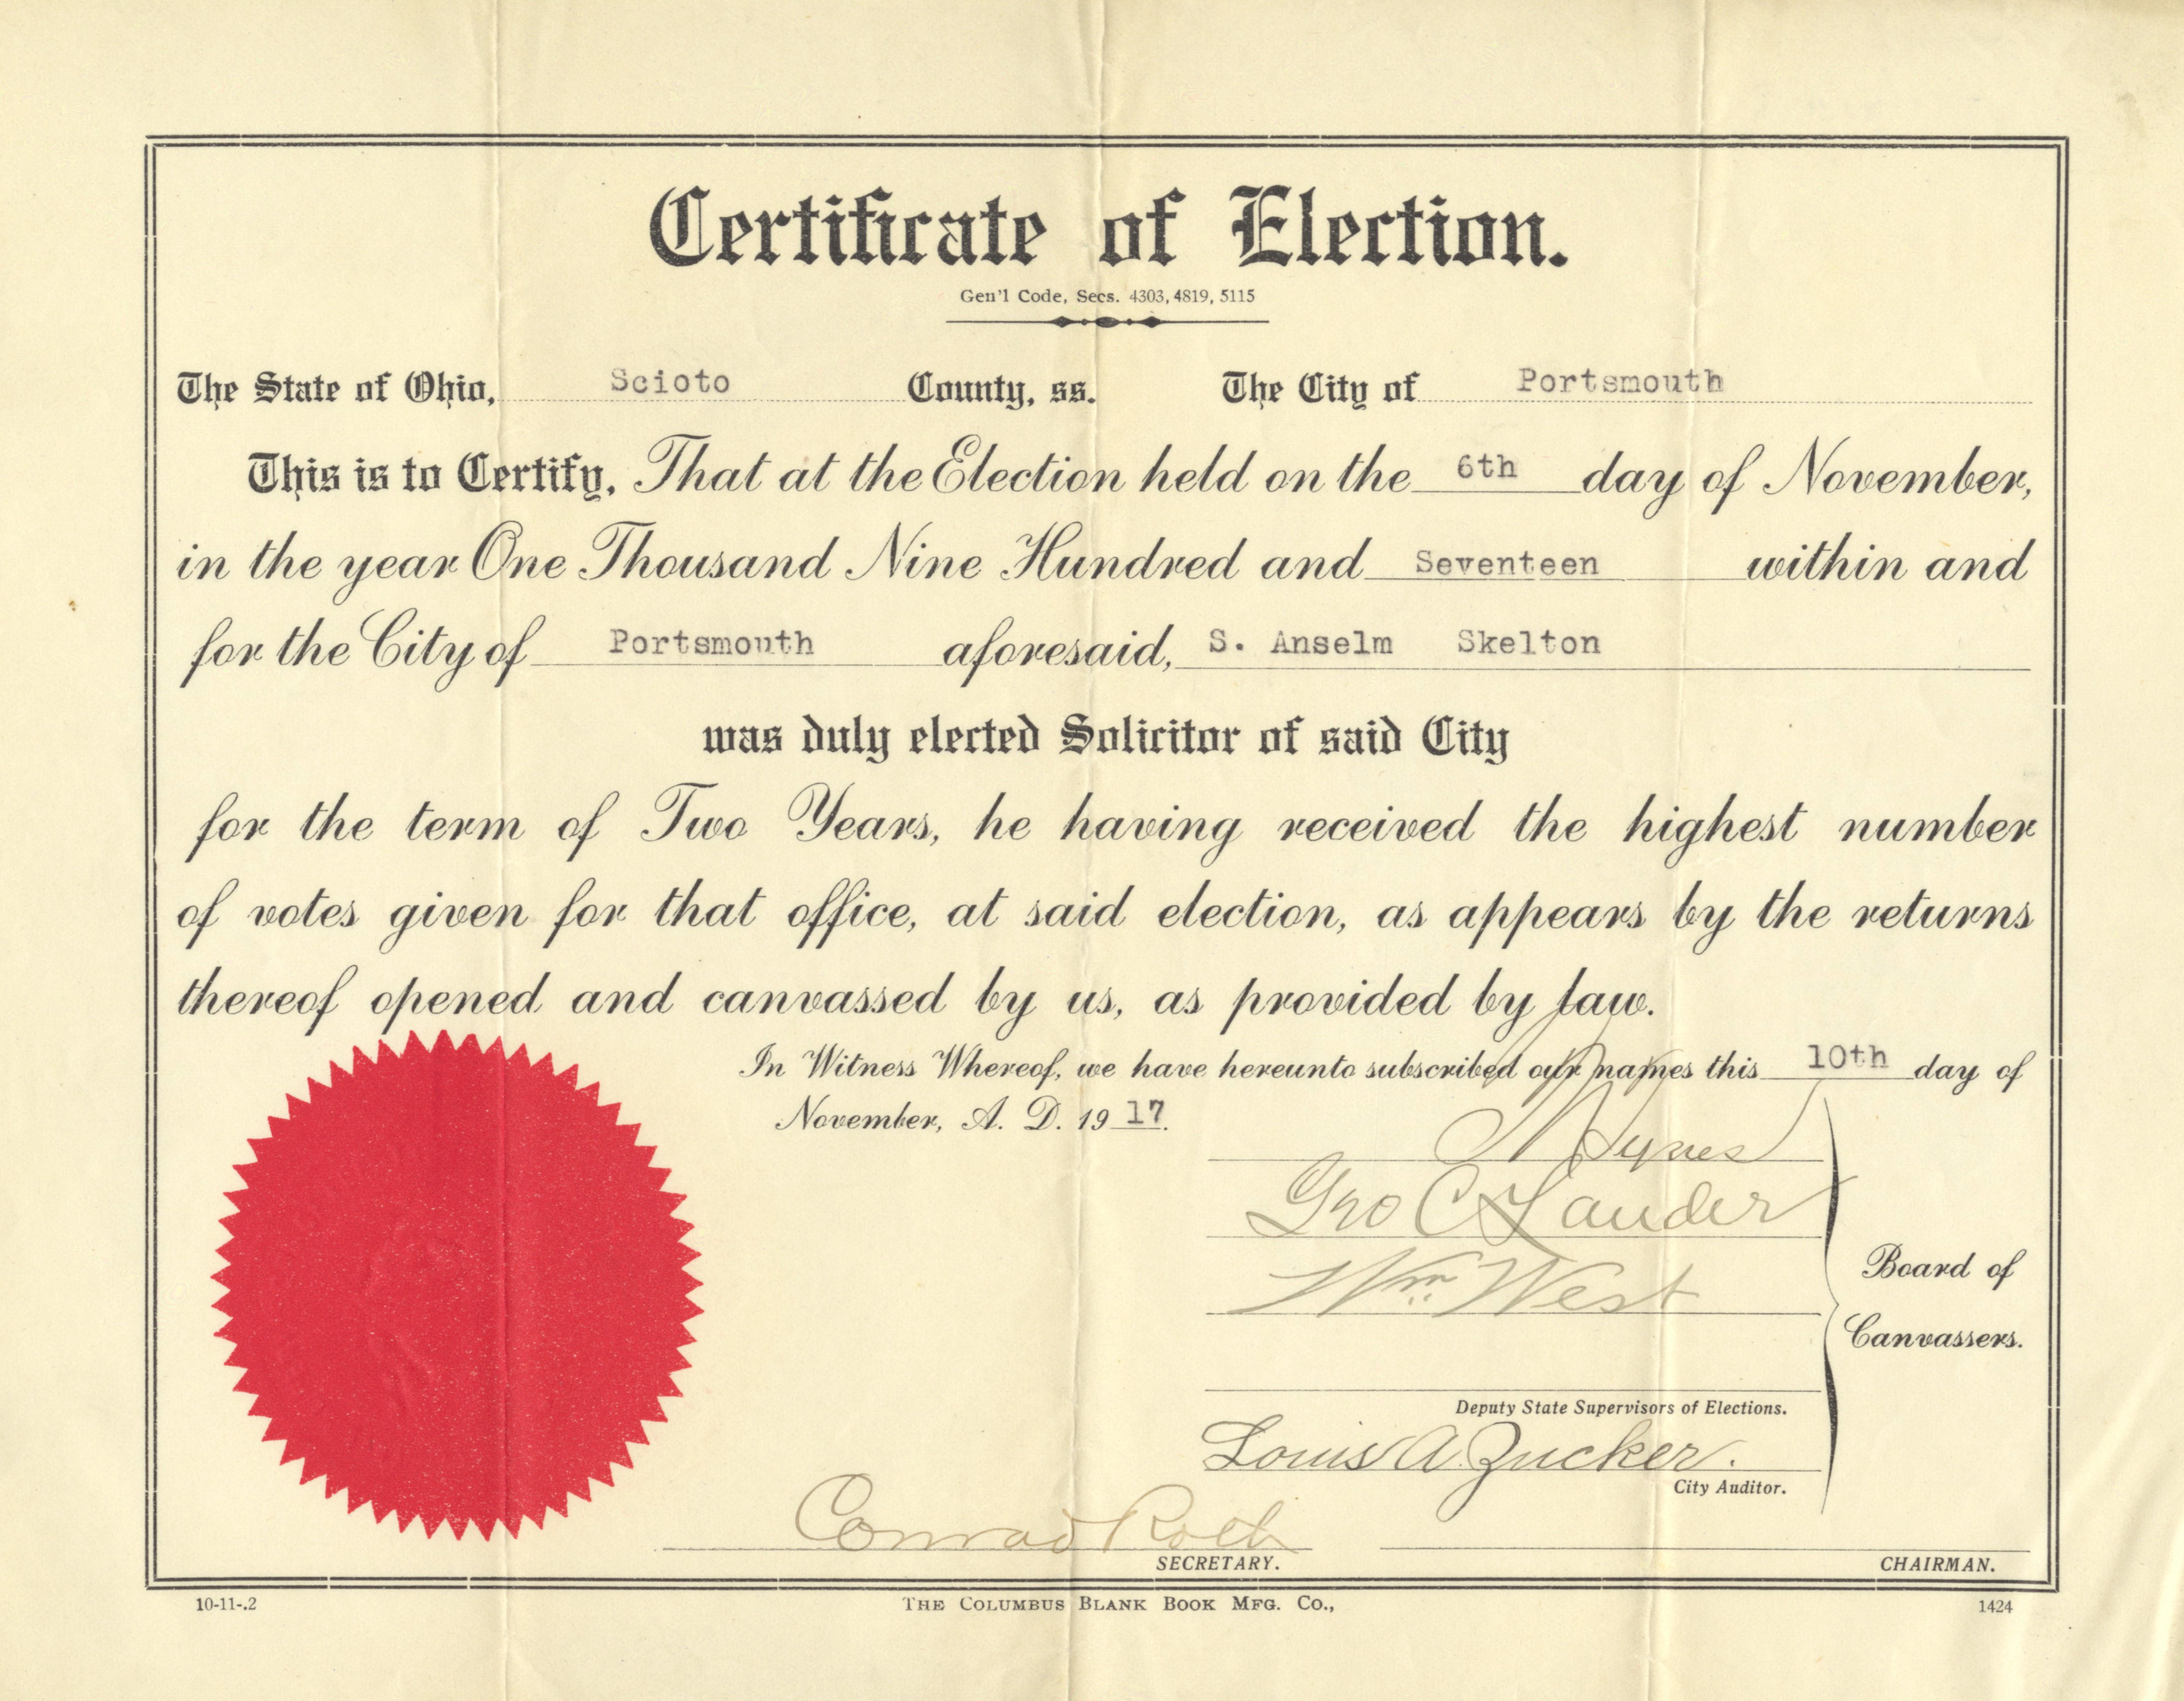 Certificate of Election.
Gen'l Code, Secs. 4303, 4819, 5115
The State of Ohio, Scioto County, ss. The City of Portsmouth
This is to Certify, That at the Election held on the 6th day of November,
in the year One Thousand Nine Hundred and Seventeen within and
for the City of Portsmouth aforesaid, S. Anselm Skelton
was duly elected Solicitor of said City
for the term of Two Years, he having received the highest number
of votes given for that office, at said election, as appears by the returns
thereof opened and canvassed by us, as provided by law.
In Witness Whereof, we have hereunto subscribed our names this 10th day of
November, A. D. 1917.
Geo C Lauder
Wm West
Board of
Canvassers.
Deputy State Supervisors of Elections.
Louis A. Zucker.
City Auditor.
Conrad Roth
SECRETARY.
CHAIRMAN.
10-11-.2
THE COLUMBUS BLANK BOOK MFG. CO.,
1424